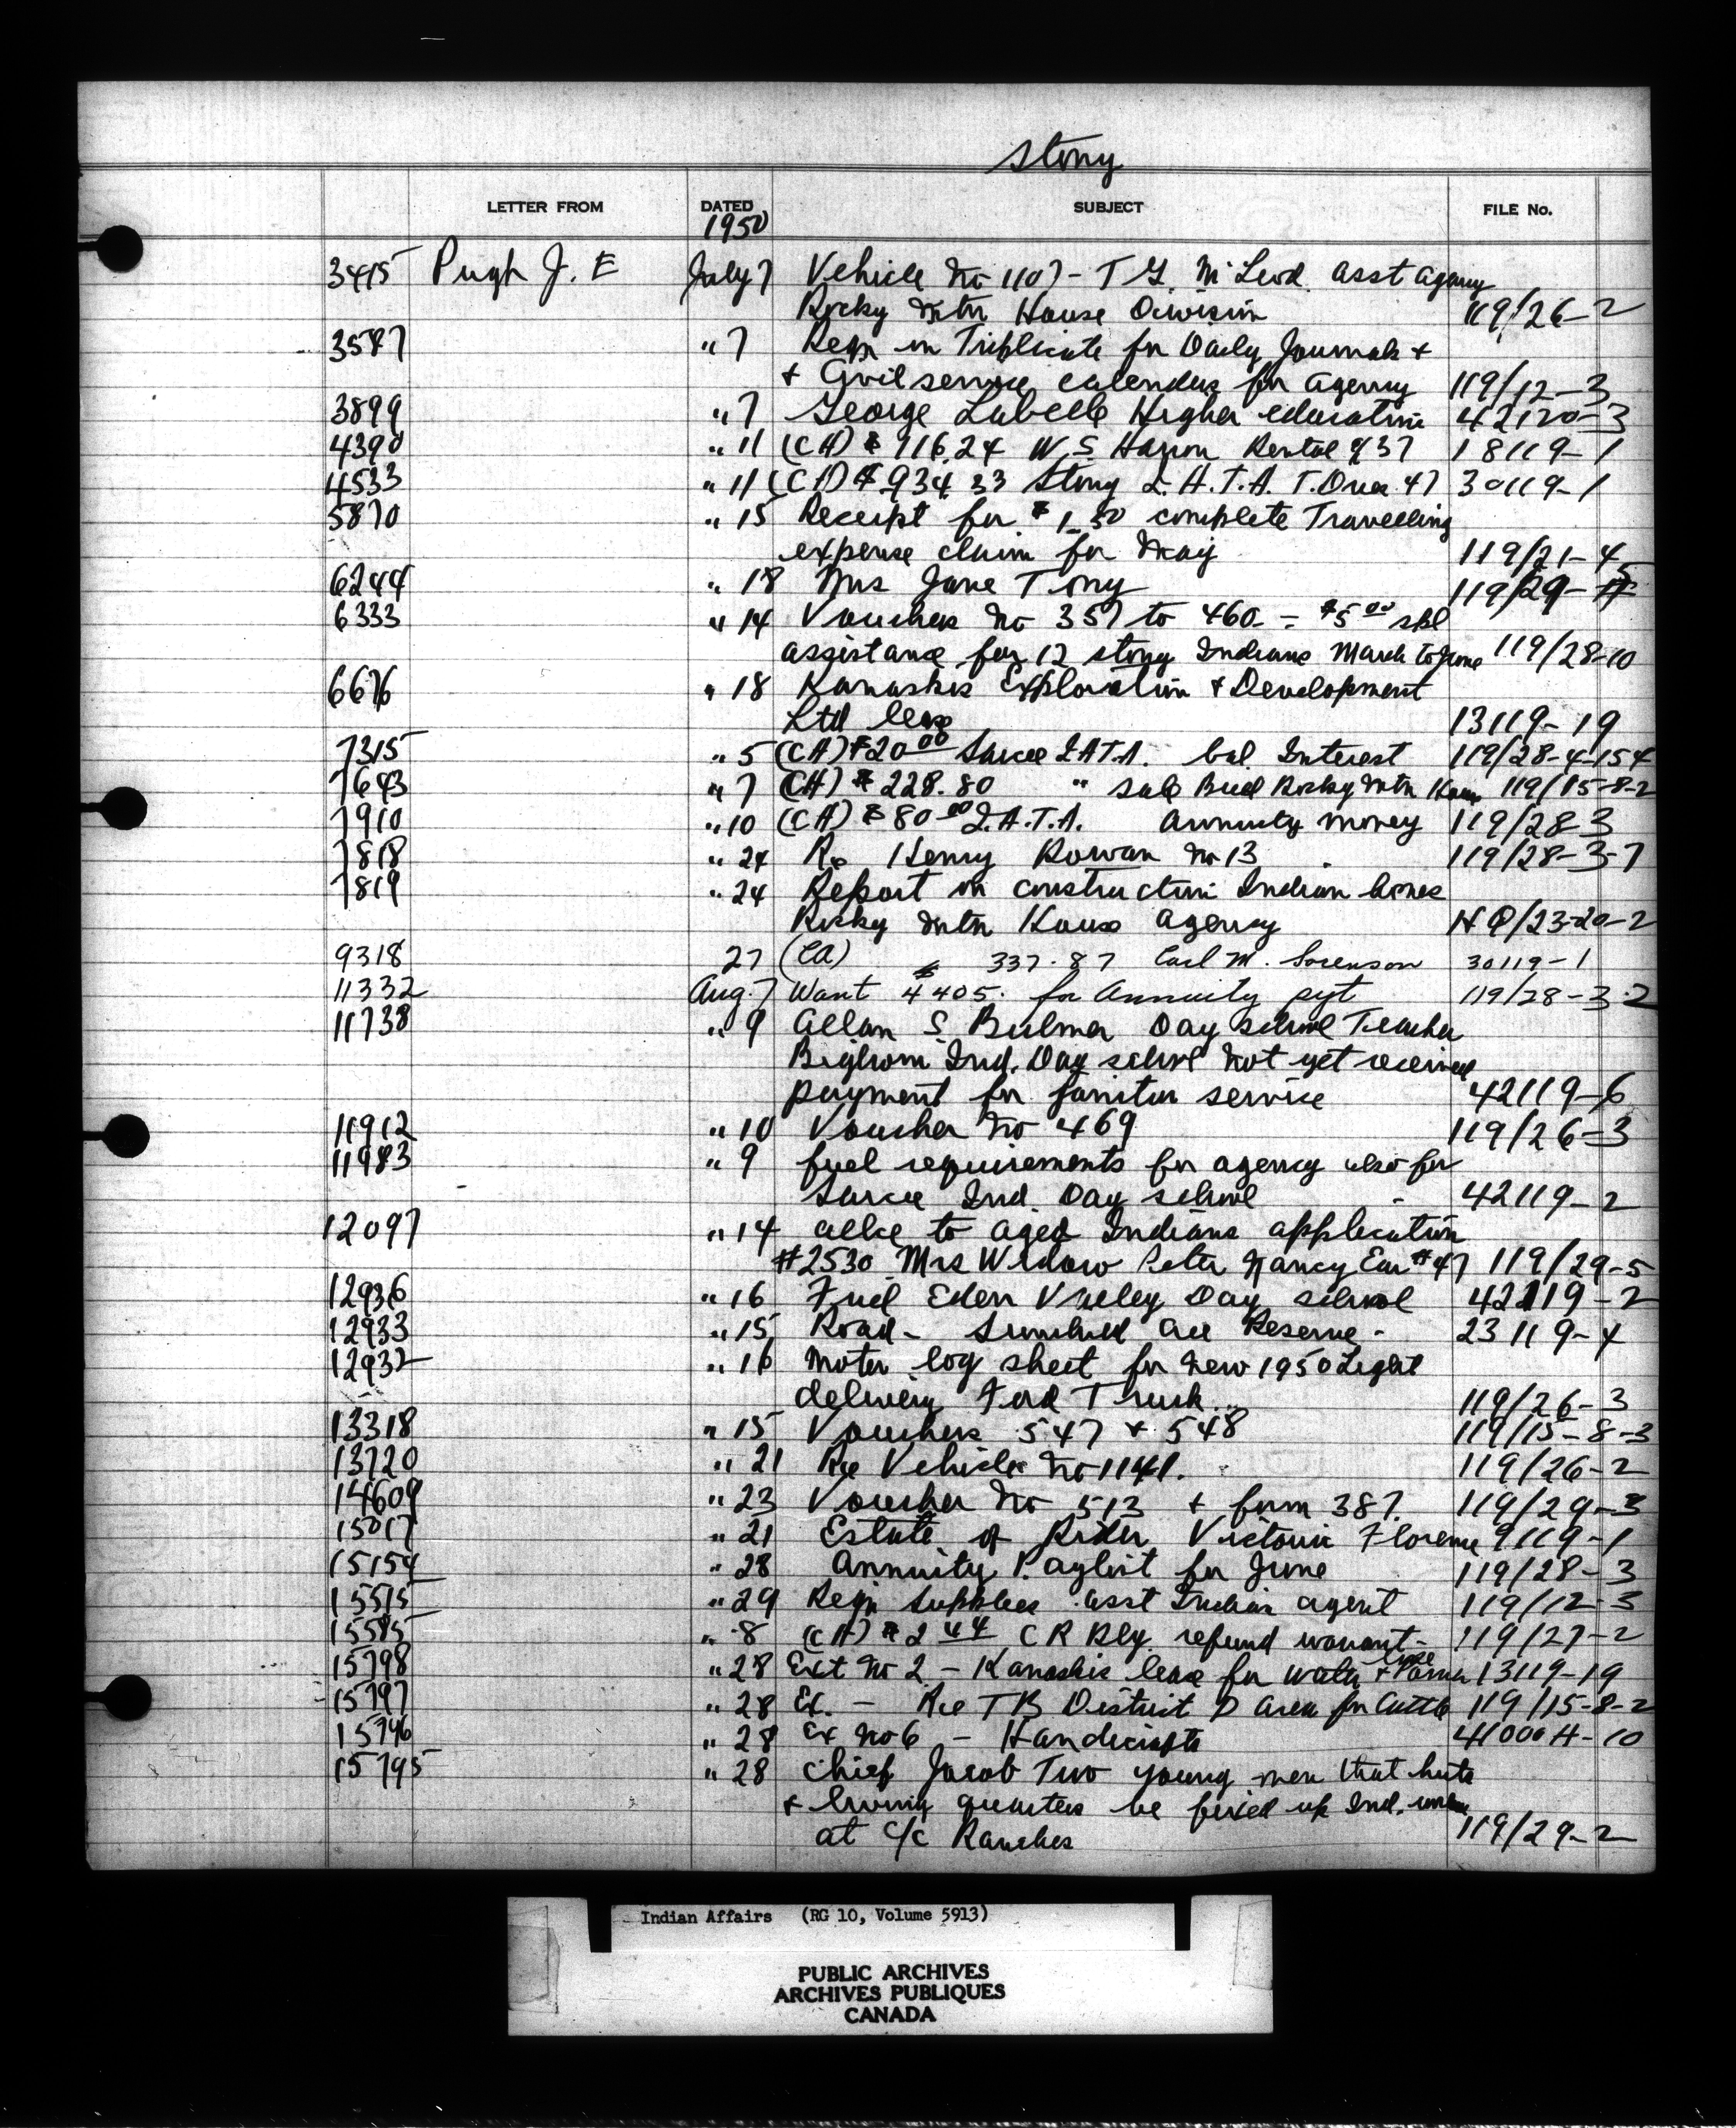 Stony
LETTER FROM DATED SUBJECT FILE No.
1950
3415 Pugh J. E July 7 Vehicle No 1107 - T G. McLeod. asst agency
Rocky Mtn House Division 119/26-2
3547 " 7 Reqn in Triplicate for Daily Journals +
+ Civil service calendars for agency 119/12-3
3899 " 7 George Labelle Higher education 42120-3
4390 " 11 (CA) $ 716.24 W. S. Rental 18119-1
4533 " 11 (CA) $ 934.33 Stony I. H. T. A. T. Over 47 30119-1
5870 " 15 Receipt for $1.50 complete Travelling
expense claim for May 119/21-4
6244 " 18 Mrs Jane Tony 119/29-5
6333 " 14 Vouchers No 357 to 460 - $5.00 spl
assistance for 12 stony Indians March to June 119/28-10
6676 " 18 Kanaskis Exploration + Development
Ltd lease 13119-19
7315 " 5 (CA) $20.00 Sarcee I.A.T.A. bal. Interest 119/28-4-154
7643 " 7 (CA) $ 228.80 " sale Beef Rocky Mtn House 119/15-8-2
7910 " 10 (CA) $80.00 I.A.T.A. annuity money 119/28-3
7818 " 24 Re Henry Rowan No 13 119/28-3-7
7819 " 24 Report on construction Indian homes
Rocky Mtn House agency HQ/23-20-2
9318 27 (CA) $ 337.87 Carl M. Sorenson 30119-1
11332 Aug. 7 Want $4405. for Annuity pyt 119/28-3-2
11738 " 9 Allan S. Bulmer Day school Teacher
Bighorn Ind. Day school not yet received
payment for janitor service 42119-6
11912 " 10 Voucher No 469 119/26-3
11983 " 9 fuel requirements for agency also for
Sarcee Ind. Day school 42119-2
12097 " 14 allce to aged Indians application
#2530 Mrs Widow Peter Nancy Ear #47 119/29-5
12936 " 16 Fuel Eden Valley Day school 42119-2
12933 " 15 Road - Reserve - 23119-4
12932 " 16 Motor log sheet for new 1950 Light
delivery Ford Truck 119/26-3
13318 " 15 Vouchers 547 + 548 119/15-8-3
13720 " 21 Re Vehicle No 1141. 119/26-2
14609 " 23 Voucher No 513 + form 387. 119/29-3
15017 " 21 Estate of Rider Victoria Florence 9119-1
15154 " 28 Annuity Paylist for June 119/28-3
15515 " 29 Reqn supplies asst Indian agent 119/12-3
15585 " 8 (CA) $2.44 C R Rly. refund warrant - 119/27-2
15798 " 28 Ext No 2 - Kanaskis lease for water + Power line 13119-19
15797 " 28 Ex. - Re T B District D area for Cattle 119/15-8-2
15796 " 28 Ex No 6 - Handicrafts 41000H-10
15795 " 28 Chief Jacob Two young men that huts
+ living quarters be fixed up Ind.
at c/c Ranches 119/29-2
Indian Affairs (RG 10, Volume 5913)
PUBLIC ARCHIVES
ARCHIVES PUBLIQUES
CANADA